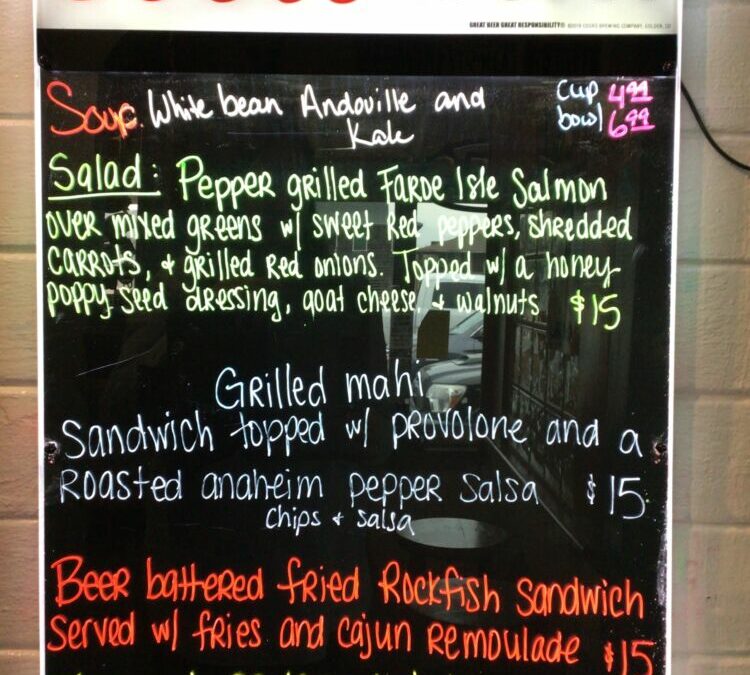 GREAT BEER GREAT RESPONSIBILITY® ©2019 COORS BREWING COMPANY, GOLDEN, CO
Soup. White bean Andoville and Kale
cup 4.99
bowl 6.99
Salad: Pepper grilled Faroe Isle Salmon
over mixed greens w/ sweet Red peppers, shredded
carrots, + grilled Red onions. Topped w/ a honey
poppy seed dressing, goat cheese, + walnuts $15
Grilled mahi
Sandwich topped w/ provolone and a
Roasted anaheim pepper salsa $15
chips + salsa
Beer battered fried Rockfish Sandwich
Served w/ fries and cajun Remoulade $15